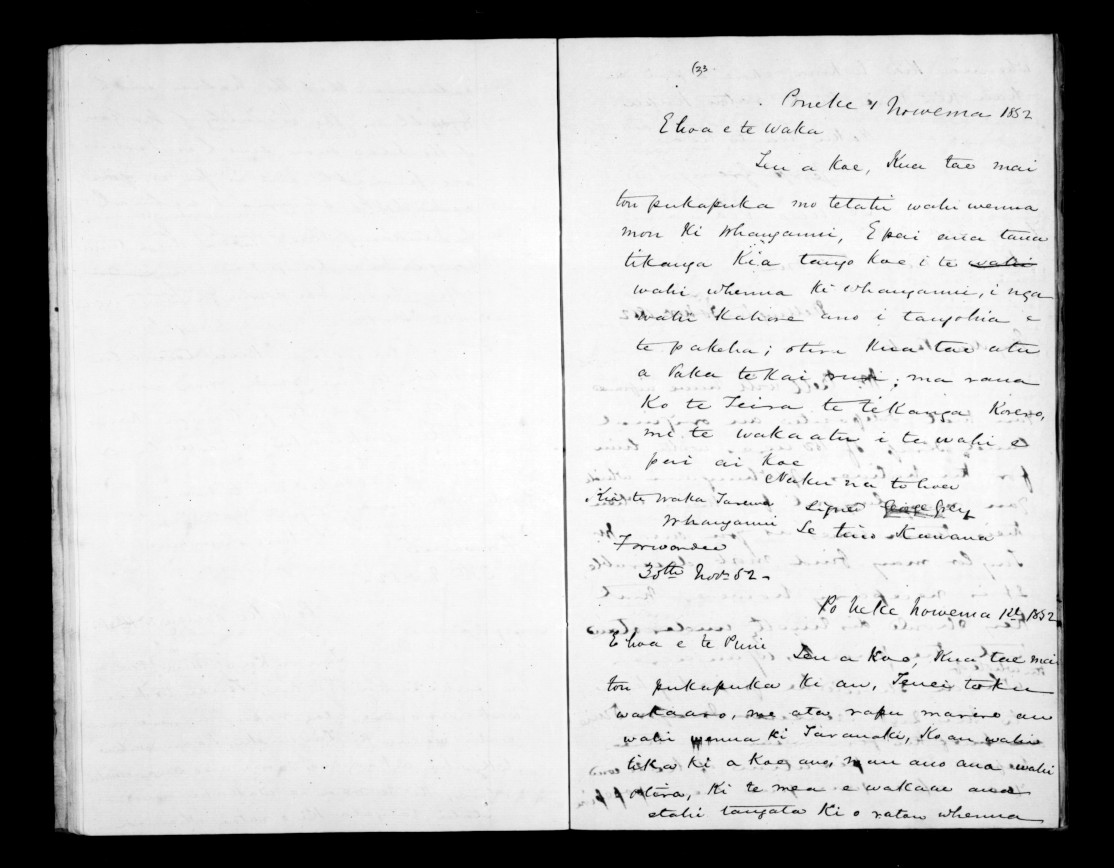 (33
Poneke Nowema 1852
E hoa e te Waka
Ten a Koe, Kua tae mai
tou pukapuka mo tetahi wahi wenua
mou Ki Whanganui, E pai ana tana
tikanga Kia tango Koe i te wahi
wahi whenua Ki Whanganui, i nga
wahi Kahore ano i tangohia e
te pakeha; otira Kua tae atu
a Vaka te Kai ruri; ma raua
Ko te Teira te tikanga Korero,
me te wakaatu i te wahi e
pai ai Koe
Naku na to hoa
Kia te Waka Tarewa Signed George Grey
Whanganui Te tino Kawana
Forwarded
30th Novr 52 -
Po Neke Nowema 1852
E hoa e te Puni
Ten a Koe, Kua tae mai
tou pukapuka Ki au, Tenei toku
wakaaro, me ata rapu marire au
wahi wenua Ki Taranaki, Ko au wahi
tika Ki a Koe ano, mau ano ana wahi
otira, Ki te mea e wakaae ana
etahi tangata Ki o ratou whenua